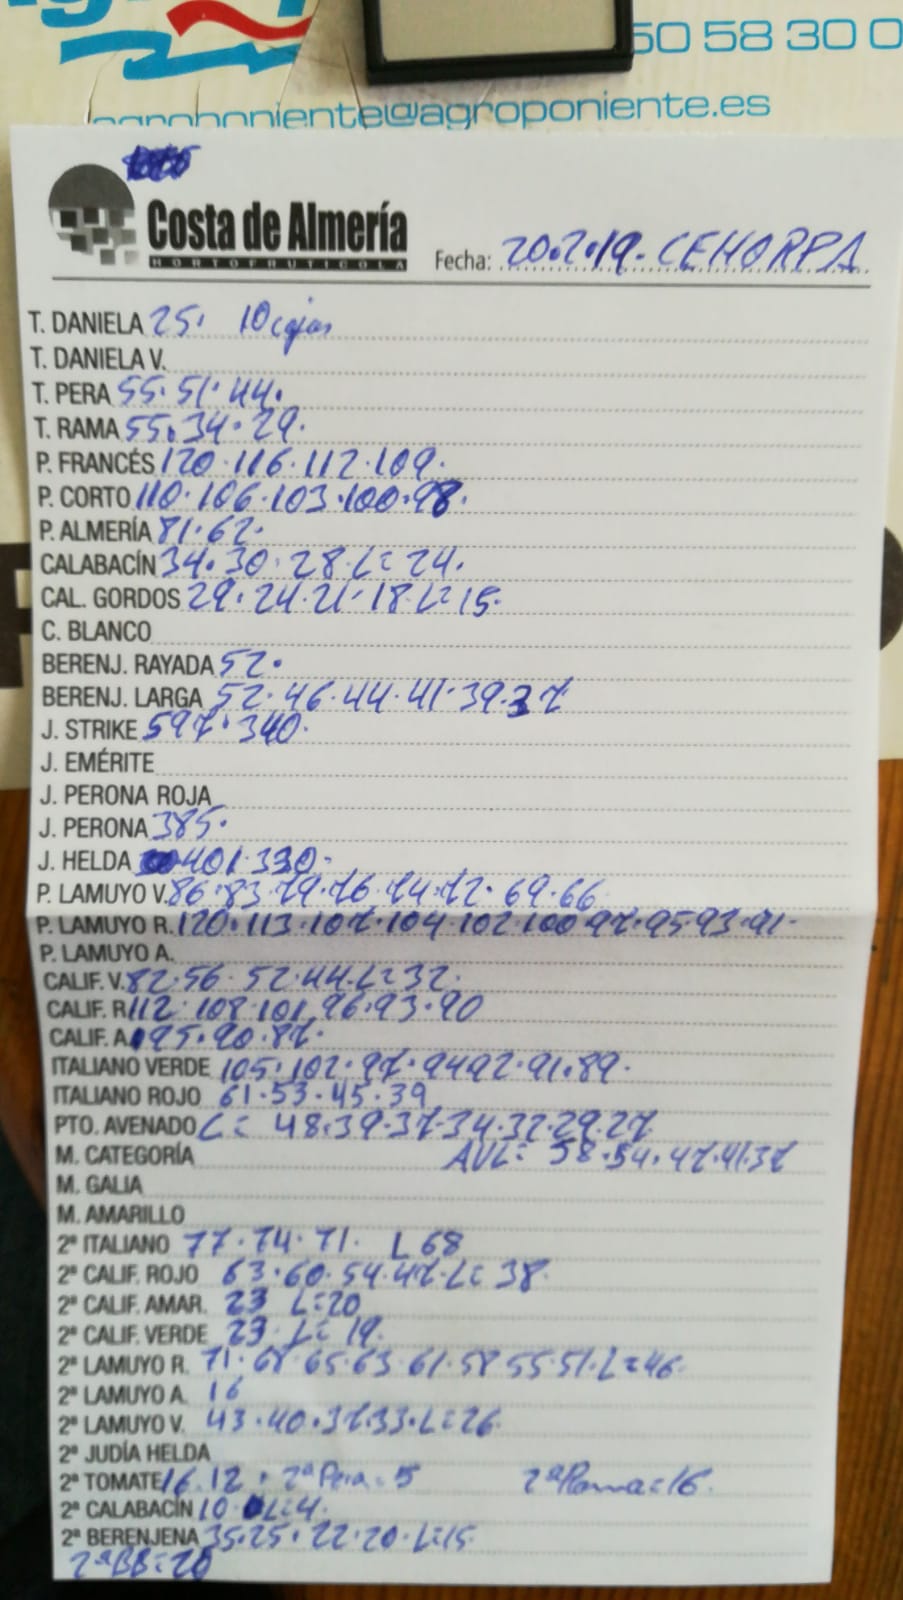 50 58 30 0
agroponiente@agroponiente.es
Costa de Almería
HORTOFRUTICOLA
Fecha: 20.2.19. CEHORPA
T. DANIELA 25. 10 cajas
T. DANIELA V.
T. PERA 55. 51. 44.
T. RAMA 55. 34. 29.
P. FRANCÉS 120. 116. 112. 109.
P. CORTO 110. 106. 103. 100. 98.
P. ALMERÍA 81. 62.
CALABACÍN 34. 30. 28. L= 24.
CAL. GORDOS 29. 24. 21. 18 L= 15.
C. BLANCO
BERENJ. RAYADA 52.
BERENJ. LARGA 52. 46. 44. 41. 39. 37
J. STRIKE 597. 340.
J. EMÉRITE
J. PERONA ROJA
J. PERONA 385.
J. HELDA 401. 330.
P. LAMUYO V. 86. 83. 79. 76. 74. 72. 69. 66
P. LAMUYO R. 120. 113. 107. 104. 102. 100 97. 95. 93. 91.
P. LAMUYO A.
CALIF. V. 82. 56. 52. 44. L= 32.
CALIF. R 112 108 101. 96. 93. 90
CALIF. A 95. 90. 87.
ITALIANO VERDE 105. 102. 97. 94 92. 91. 89.
ITALIANO ROJO 61. 53. 45. 39
PTO. AVENADO L= 48. 39. 37. 34. 32. 29. 27
M. CATEGORÍA AVL= 58. 54. 47. 41. 37
M. GALIA
M. AMARILLO
2ª ITALIANO 77. 74. 71. L 68
2ª CALIF. ROJO 63. 60. 54. 47. L= 38.
2ª CALIF. AMAR. 23 L=20
2ª CALIF. VERDE 23. L= 19.
2ª LAMUYO R. 71. 68. 65. 63. 61. 58 55. 51. L=46.
2ª LAMUYO A. 16
2ª LAMUYO V. 43. 40. 37. 33. L= 26
2ª JUDÍA HELDA
2ª TOMATE 16. 12. 2ª Pera = 5 2ª Rama = 16.
2ª CALABACÍN 10 L=4.
2ª BERENJENA 35. 25. 22. 20. L=15.
2ª BB = 20